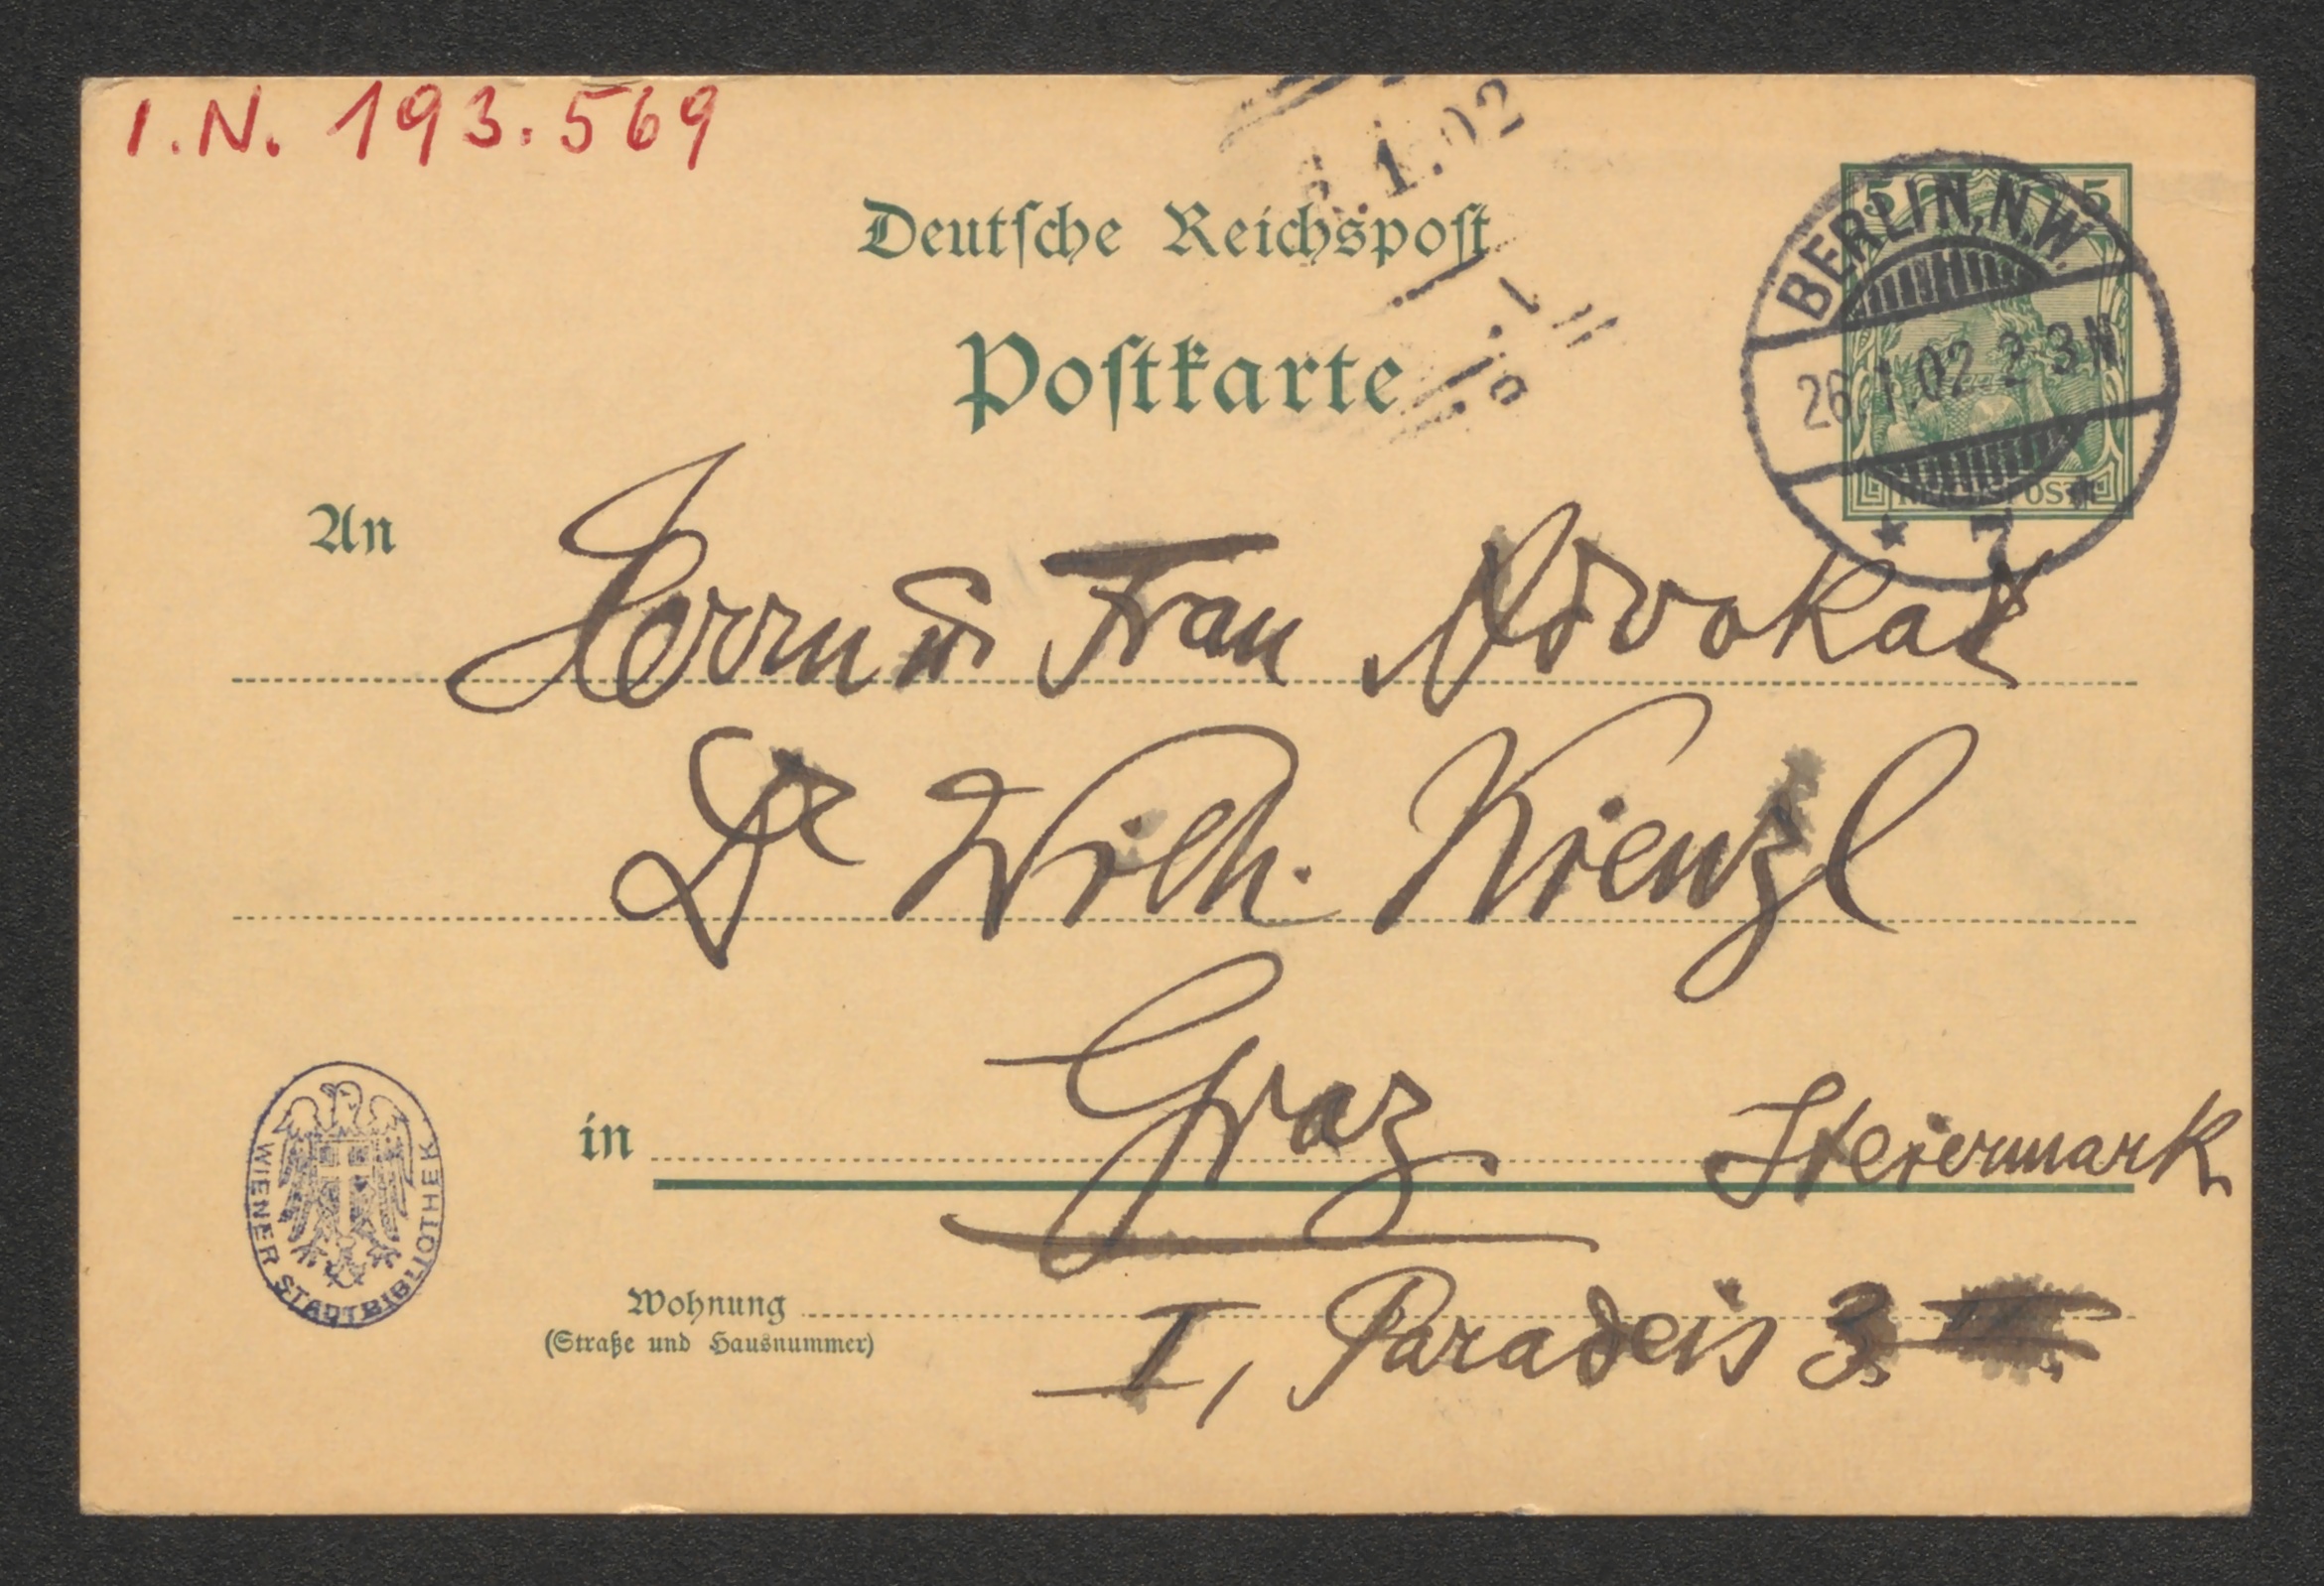 I.N. 193.569
1.02
Deutsche Reichspost
Postkarte
5 5
BERLIN, N.W.
26.1.02 2-3N.
REICHSPOST
An Herrn u. Frau Advokat
Dr Wilh. Kienzl
in Graz Steiermark
Wohnung I, Paradeis 3
(Straße und Hausnummer)
WIENER STADTBIBLIOTHEK